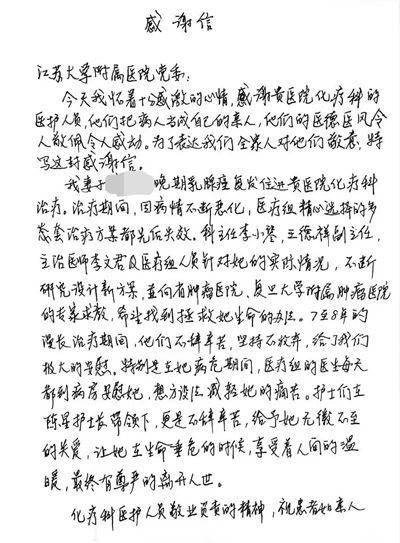 感谢信
江苏大学附属医院党委:
今天我怀着十分感激的心情,感谢贵医院化疗科的
医护人员,他们把病人当成自己的亲人,他们的医德医风令
人敬佩令人感动。为了表达我们全家人对他们敬意,特
写这封感谢信。
我妻子 晚期乳腺癌复发住进贵医院化疗科
治疗。治疗期间,因病情不断恶化,医疗组精心选择的多
套治疗方案都先后失效。科主任李小琴、王德祥副主任,
主治医师李文君及医疗组人员针对她的实际情况,不断
研究设计新方案,并向省肿瘤医院、复旦大学附属肿瘤医院
的专家求教,希望找到拯救她生命的办法。7至8年的
漫长治疗期间,他们不辞辛苦,坚持不放弃,给了我们
极大的安慰。特别是在她病危期间,医疗组的医生每天
都到病房安慰她,想方设法减轻她的痛苦。护士们在
陈星护士长带领下,更是不辞辛苦,给予她无微不至
的关爱,让她在生命垂危的时候,享受着人间的温
暖,最终有尊严的离开人世。
化疗科医护人员敬业负责的精神,视患者如亲人